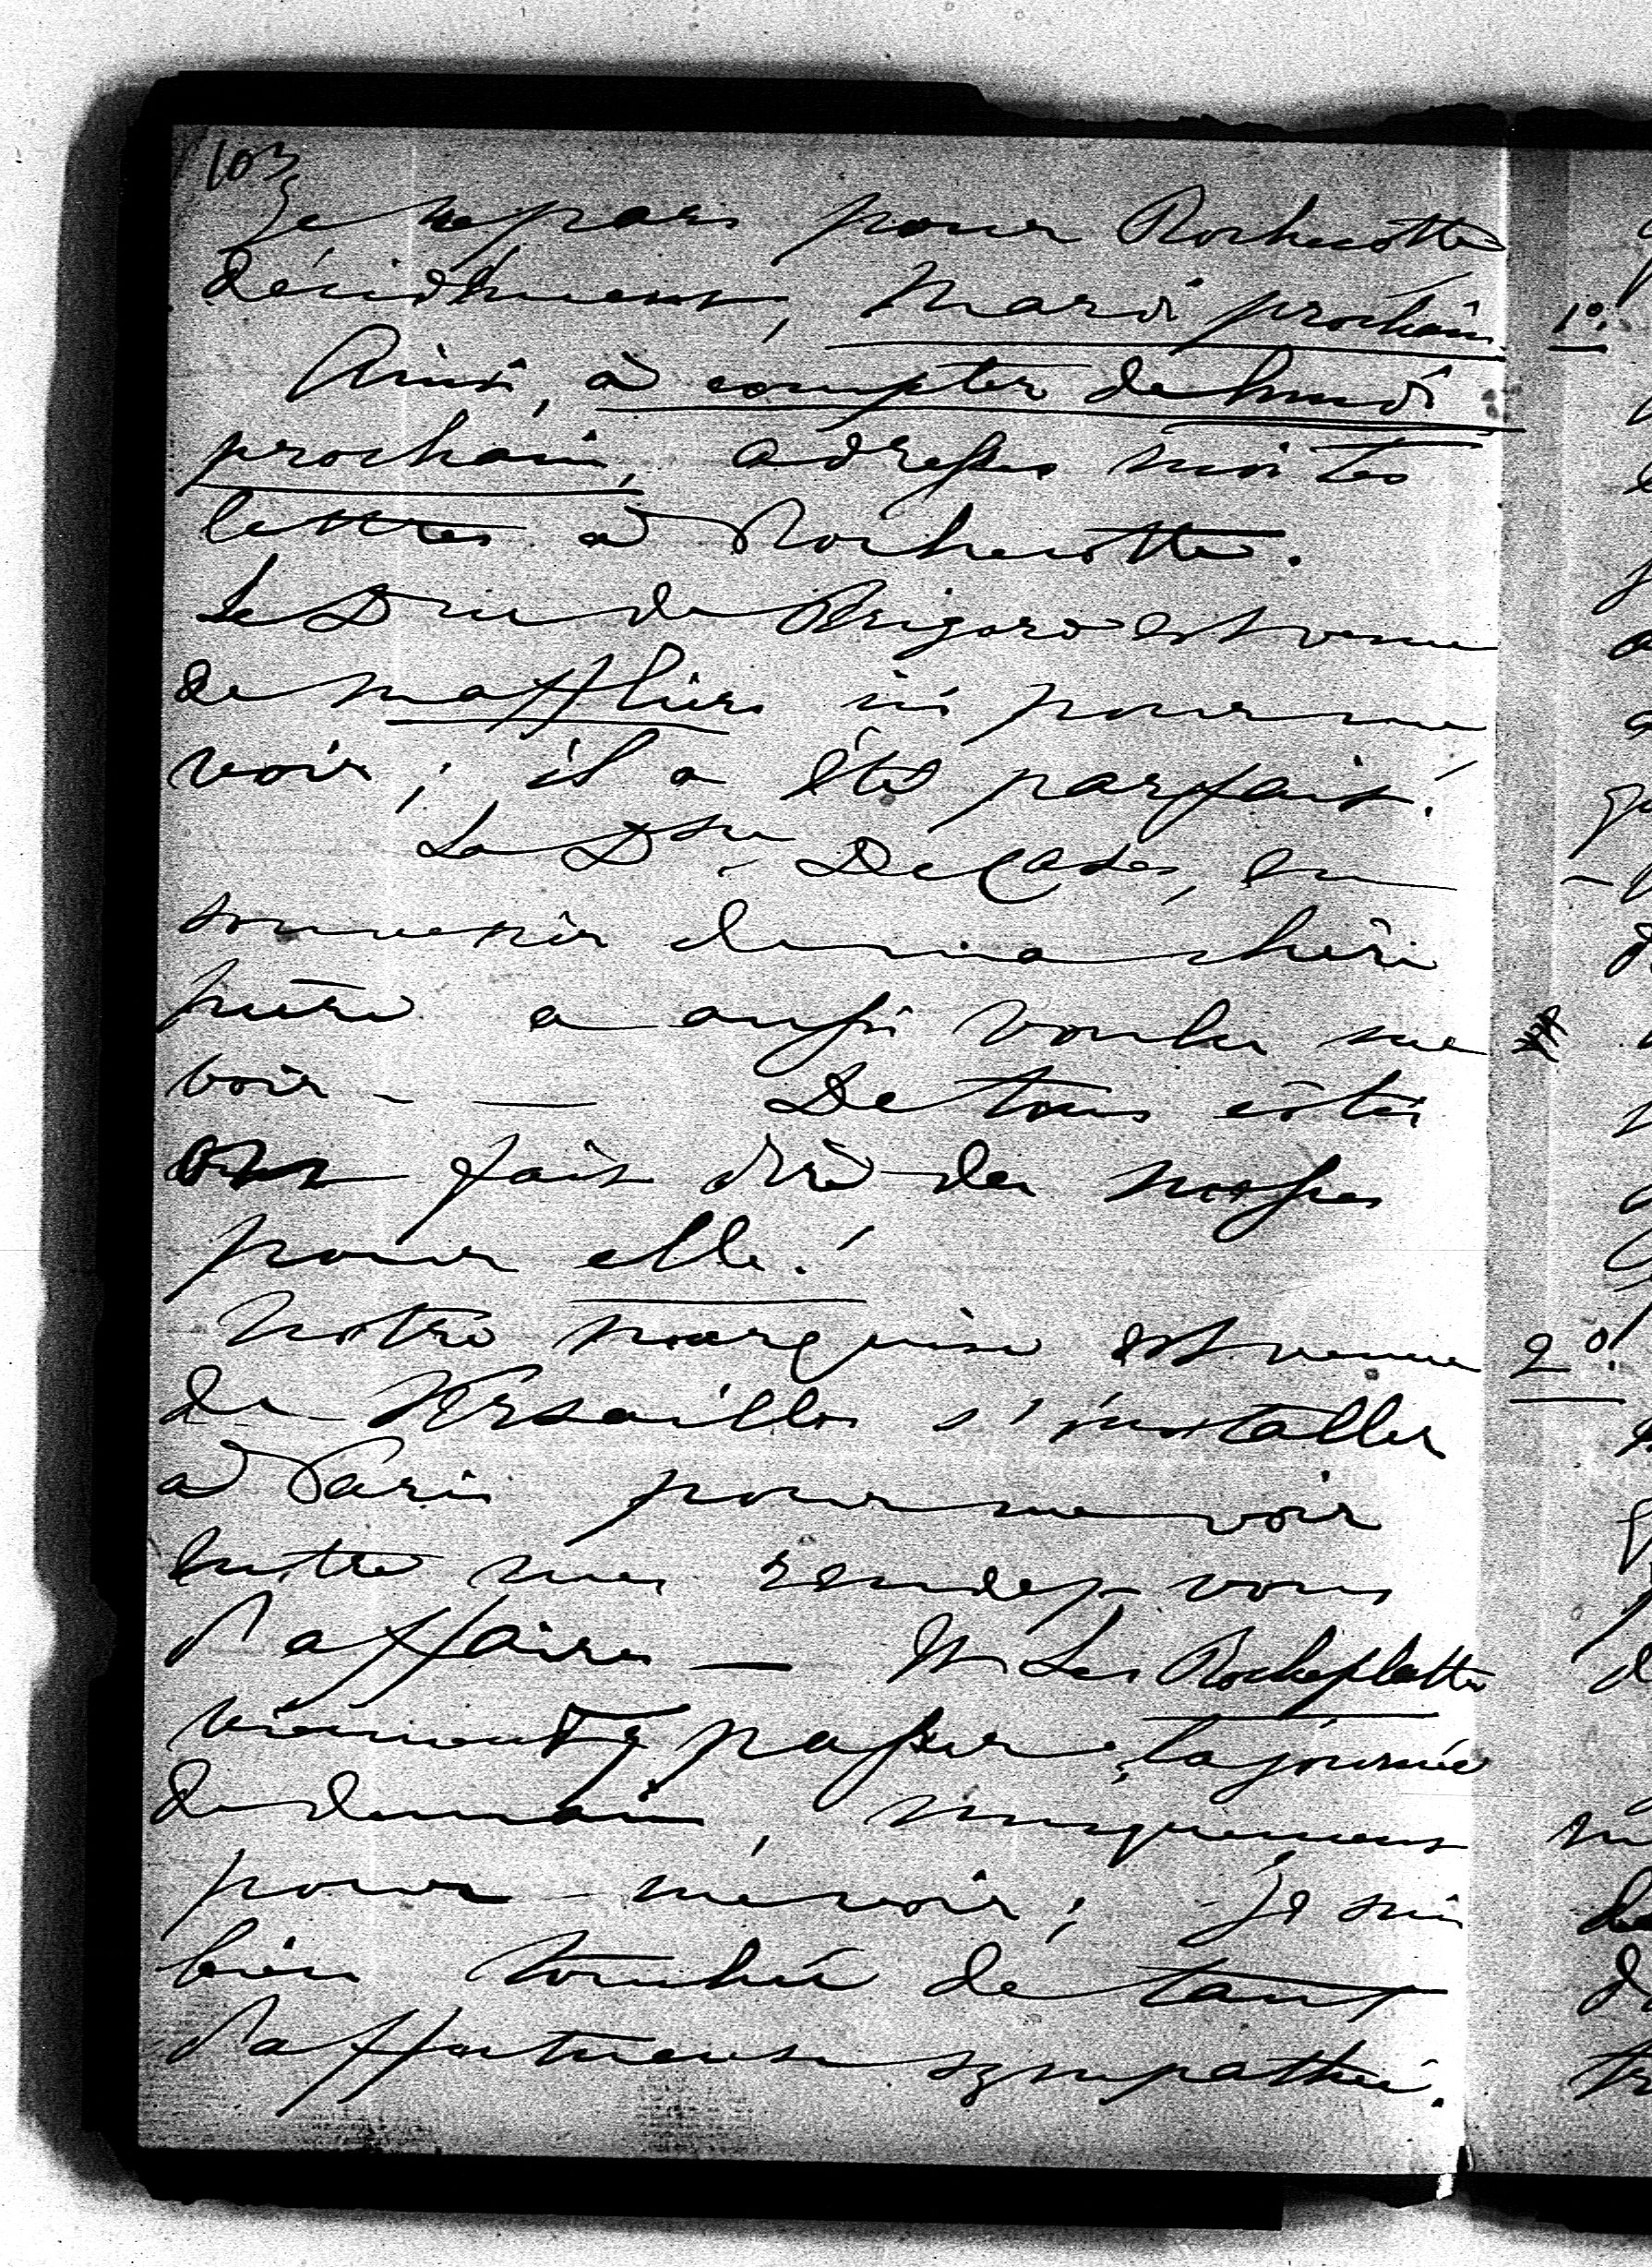 103
Je repars pour Rochecotte
décidément, Mardi prochain.
Ainsi, à compter de lundi
prochain, adresses moi tes
lettres à Rochecotte.
Le Duc de Périgord est venu
de Maffliers ici pour me
voir; il a été parfait!
La Dsse De Cases, en
souvenir de ma chère
mère a aussi voulu me
voir - — De tous côtés
on fait dire des messes
pour elle!
Notre marquise est venue
de Versailles s'installer
à Paris pour me voir
entre mes rendez-vous
d'affaires — Les Rocheplatte
viennent passer la journée
de demain, uniquement
pour me voir; je suis
bien touché de tant
d'affectueuse sympathie.
1º.
2º.